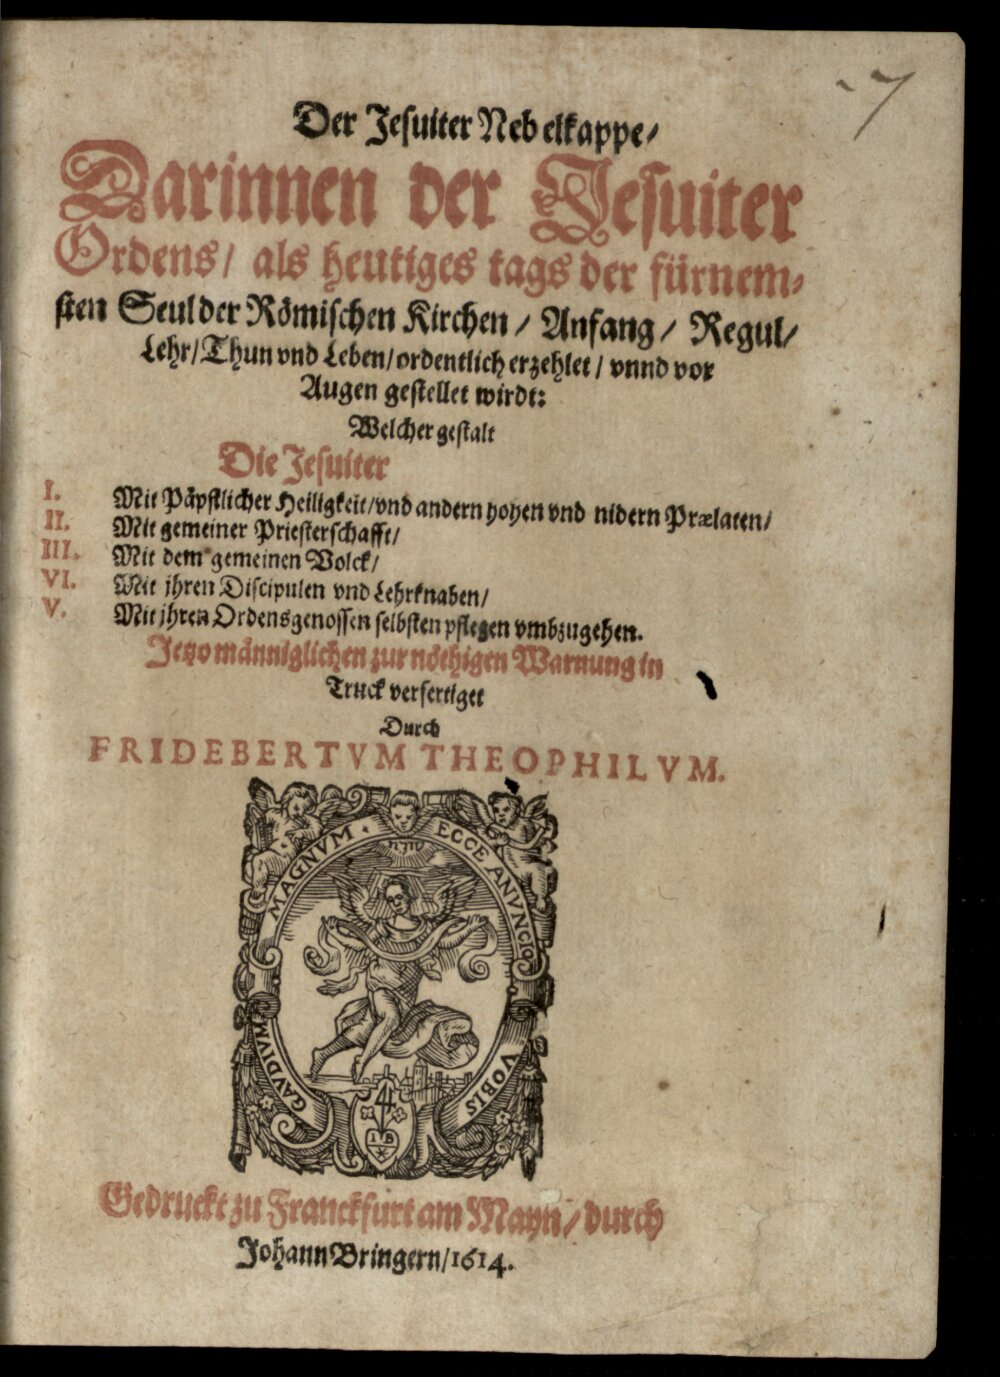 7
Der Jesuiter Nebelkappe/
Darinnen der Jesuiter
Ordens/ als heutiges tags der fürnem-
sten Seul der Römischen Kirchen/ Anfang/ Regul/
Lehr/ Thun vnd Leben/ ordentlich erzehlet/ vnnd vor
Augen gestellet wirdt:
Welcher gestalt
Die Jesuiter
I. Mit Päpstlicher Heiligkeit/ vnd andern hohen vnd nidern Prælaten/
II. Mit gemeiner Priesterschafft/
III. Mit dem gemeinen Volck/
VI. Mit jhren Discipulen vnd Lehrknaben/
V. Mit jhren Ordensgenossen selbsten pflegen vmbzugehen.
Jetzo männiglichen zur nöthigen Warnung in
Truck verfertiget
Durch
FRIDEBERTVM THEOPHILVM.
ECCE ANVNCIO
VOBIS
GAVDIVM
MAGNVM
IB
Gedruckt zu Franckfurt am Mayn/ durch
Johann Bringern/ 1614.